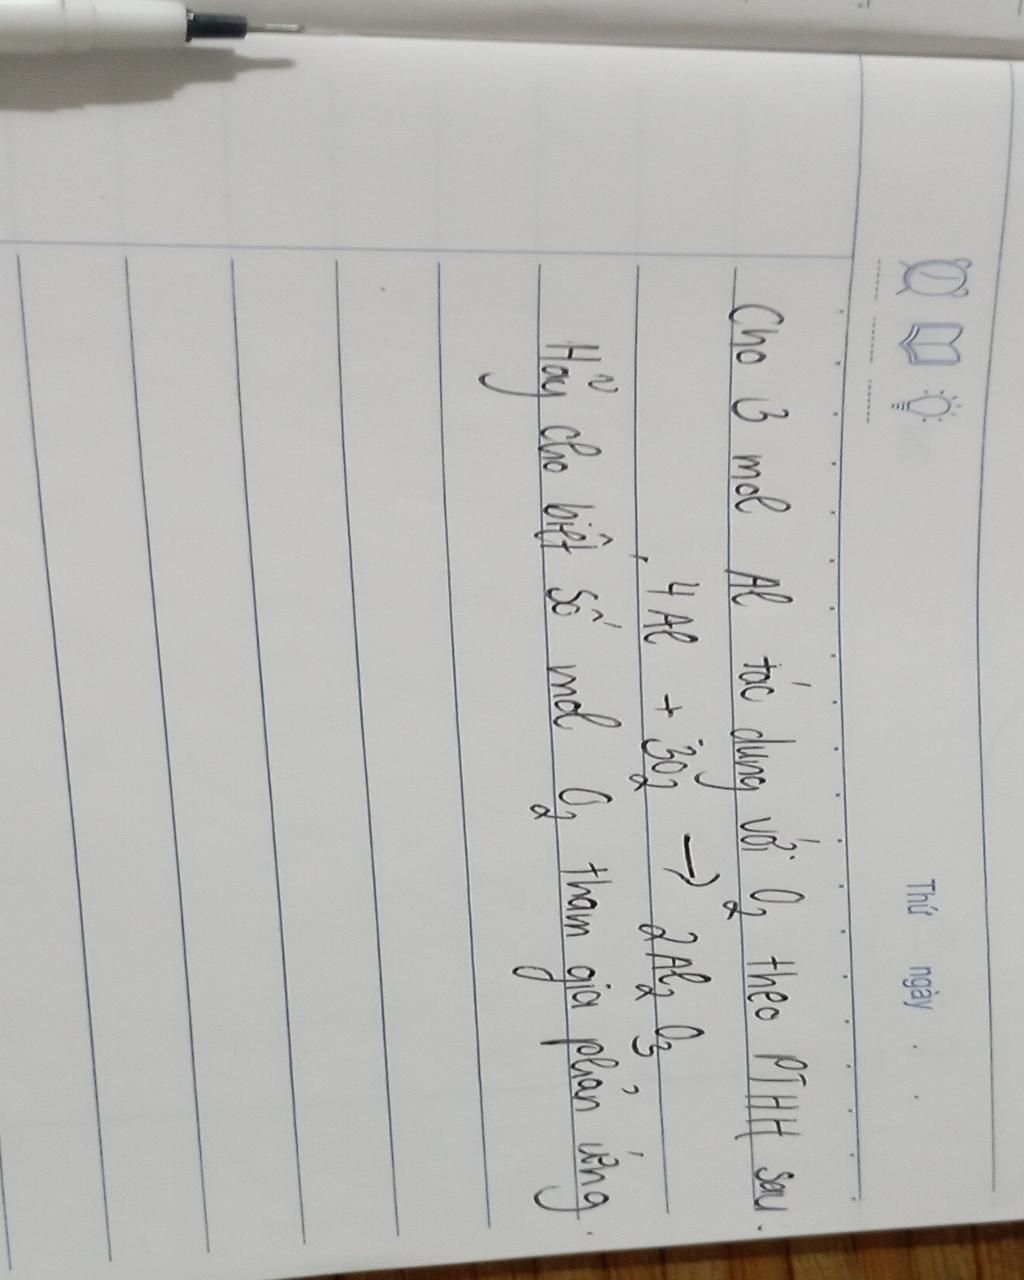 Thứ ngày
Cho 3 mol Al tác dụng với O₂ theo PTHH sau.
4Al + 3O₂ → 2Al₂O₃
Hãy cho biết số mol O₂ tham gia phản ứng.